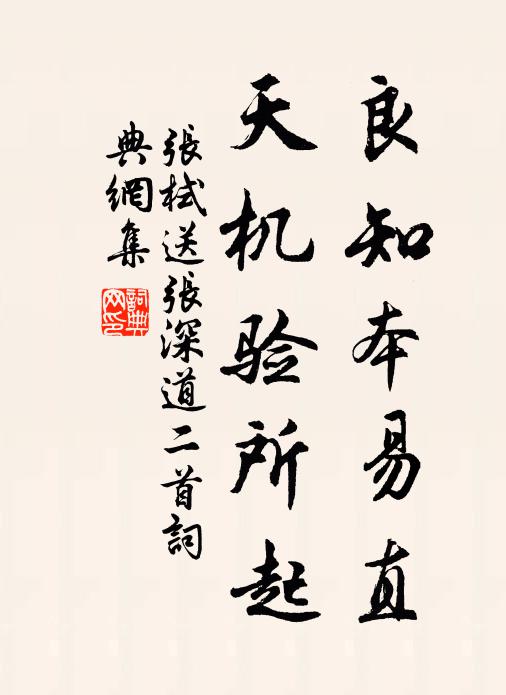 良知本易直
天机验所起
張栻送張深道二首詞
典網集
詞典
网印